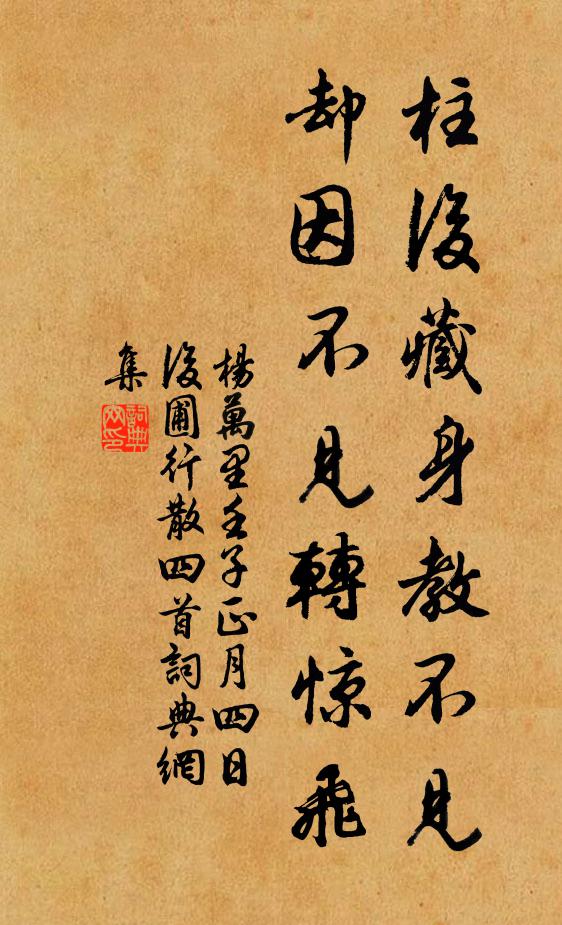 柱後藏身教不見
却因不見轉惊飛
楊萬里壬子正月四日
後圃行散四首詞典網
集
詞典網印